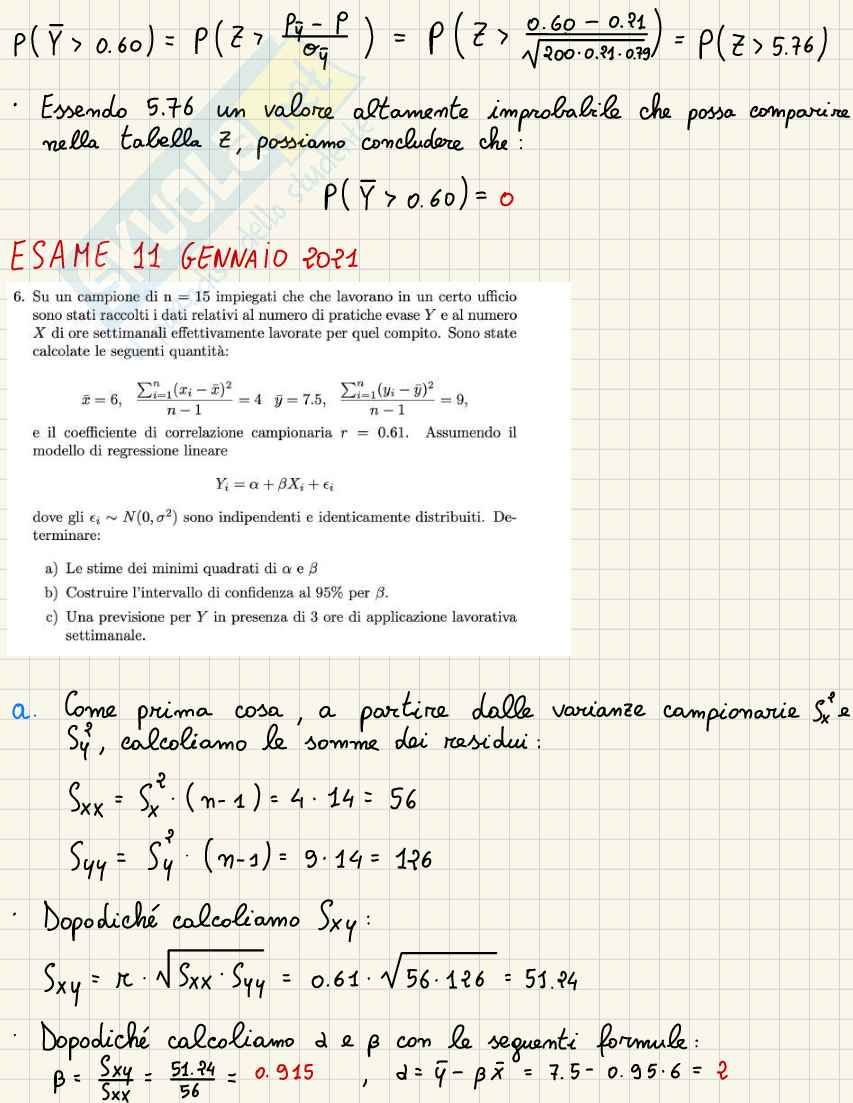 P(Ȳ > 0.60) = P(Z > (P_ȳ - P)/σ_ȳ) = P(Z > (0.60 - 0.21)/√(200·0.21·0.79)) = P(Z > 5.76)
· Essendo 5.76 un valore altamente improbabile che possa comparire
nella tabella Z, possiamo concludere che:
P(Ȳ > 0.60) = 0
ESAME 11 GENNAIO 2021
6. Su un campione di n = 15 impiegati che che lavorano in un certo ufficio
sono stati raccolti i dati relativi al numero di pratiche evase Y e al numero
X di ore settimanali effettivamente lavorate per quel compito. Sono state
calcolate le seguenti quantità:
x̄ = 6, ∑ⁿᵢ₌₁(xᵢ − x̄)²/(n − 1) = 4 ȳ = 7.5, ∑ⁿᵢ₌₁(yᵢ − ȳ)²/(n − 1) = 9,
e il coefficiente di correlazione campionaria r = 0.61. Assumendo il
modello di regressione lineare
Yᵢ = α + βXᵢ + ϵᵢ
dove gli ϵᵢ ∼ N(0, σ²) sono indipendenti e identicamente distribuiti. De-
terminare:
a) Le stime dei minimi quadrati di α e β
b) Costruire l'intervallo di confidenza al 95% per β.
c) Una previsione per Y in presenza di 3 ore di applicazione lavorativa
settimanale.
a. Come prima cosa, a partire dalle varianze campionarie Sx² e
Sy², calcoliamo le somme dei residui:
Sxx = Sx² · (n-1) = 4 · 14 = 56
Syy = Sy² · (n-1) = 9 · 14 = 126
· Dopodiché calcoliamo Sxy:
Sxy = r · √(Sxx · Syy) = 0.61 · √(56 · 126) = 51.24
· Dopodiché calcoliamo α e β con le seguenti formule:
β = Sxy/Sxx = 51.24/56 = 0.915 , α = ȳ - βx̄ = 7.5 - 0.95·6 = 2